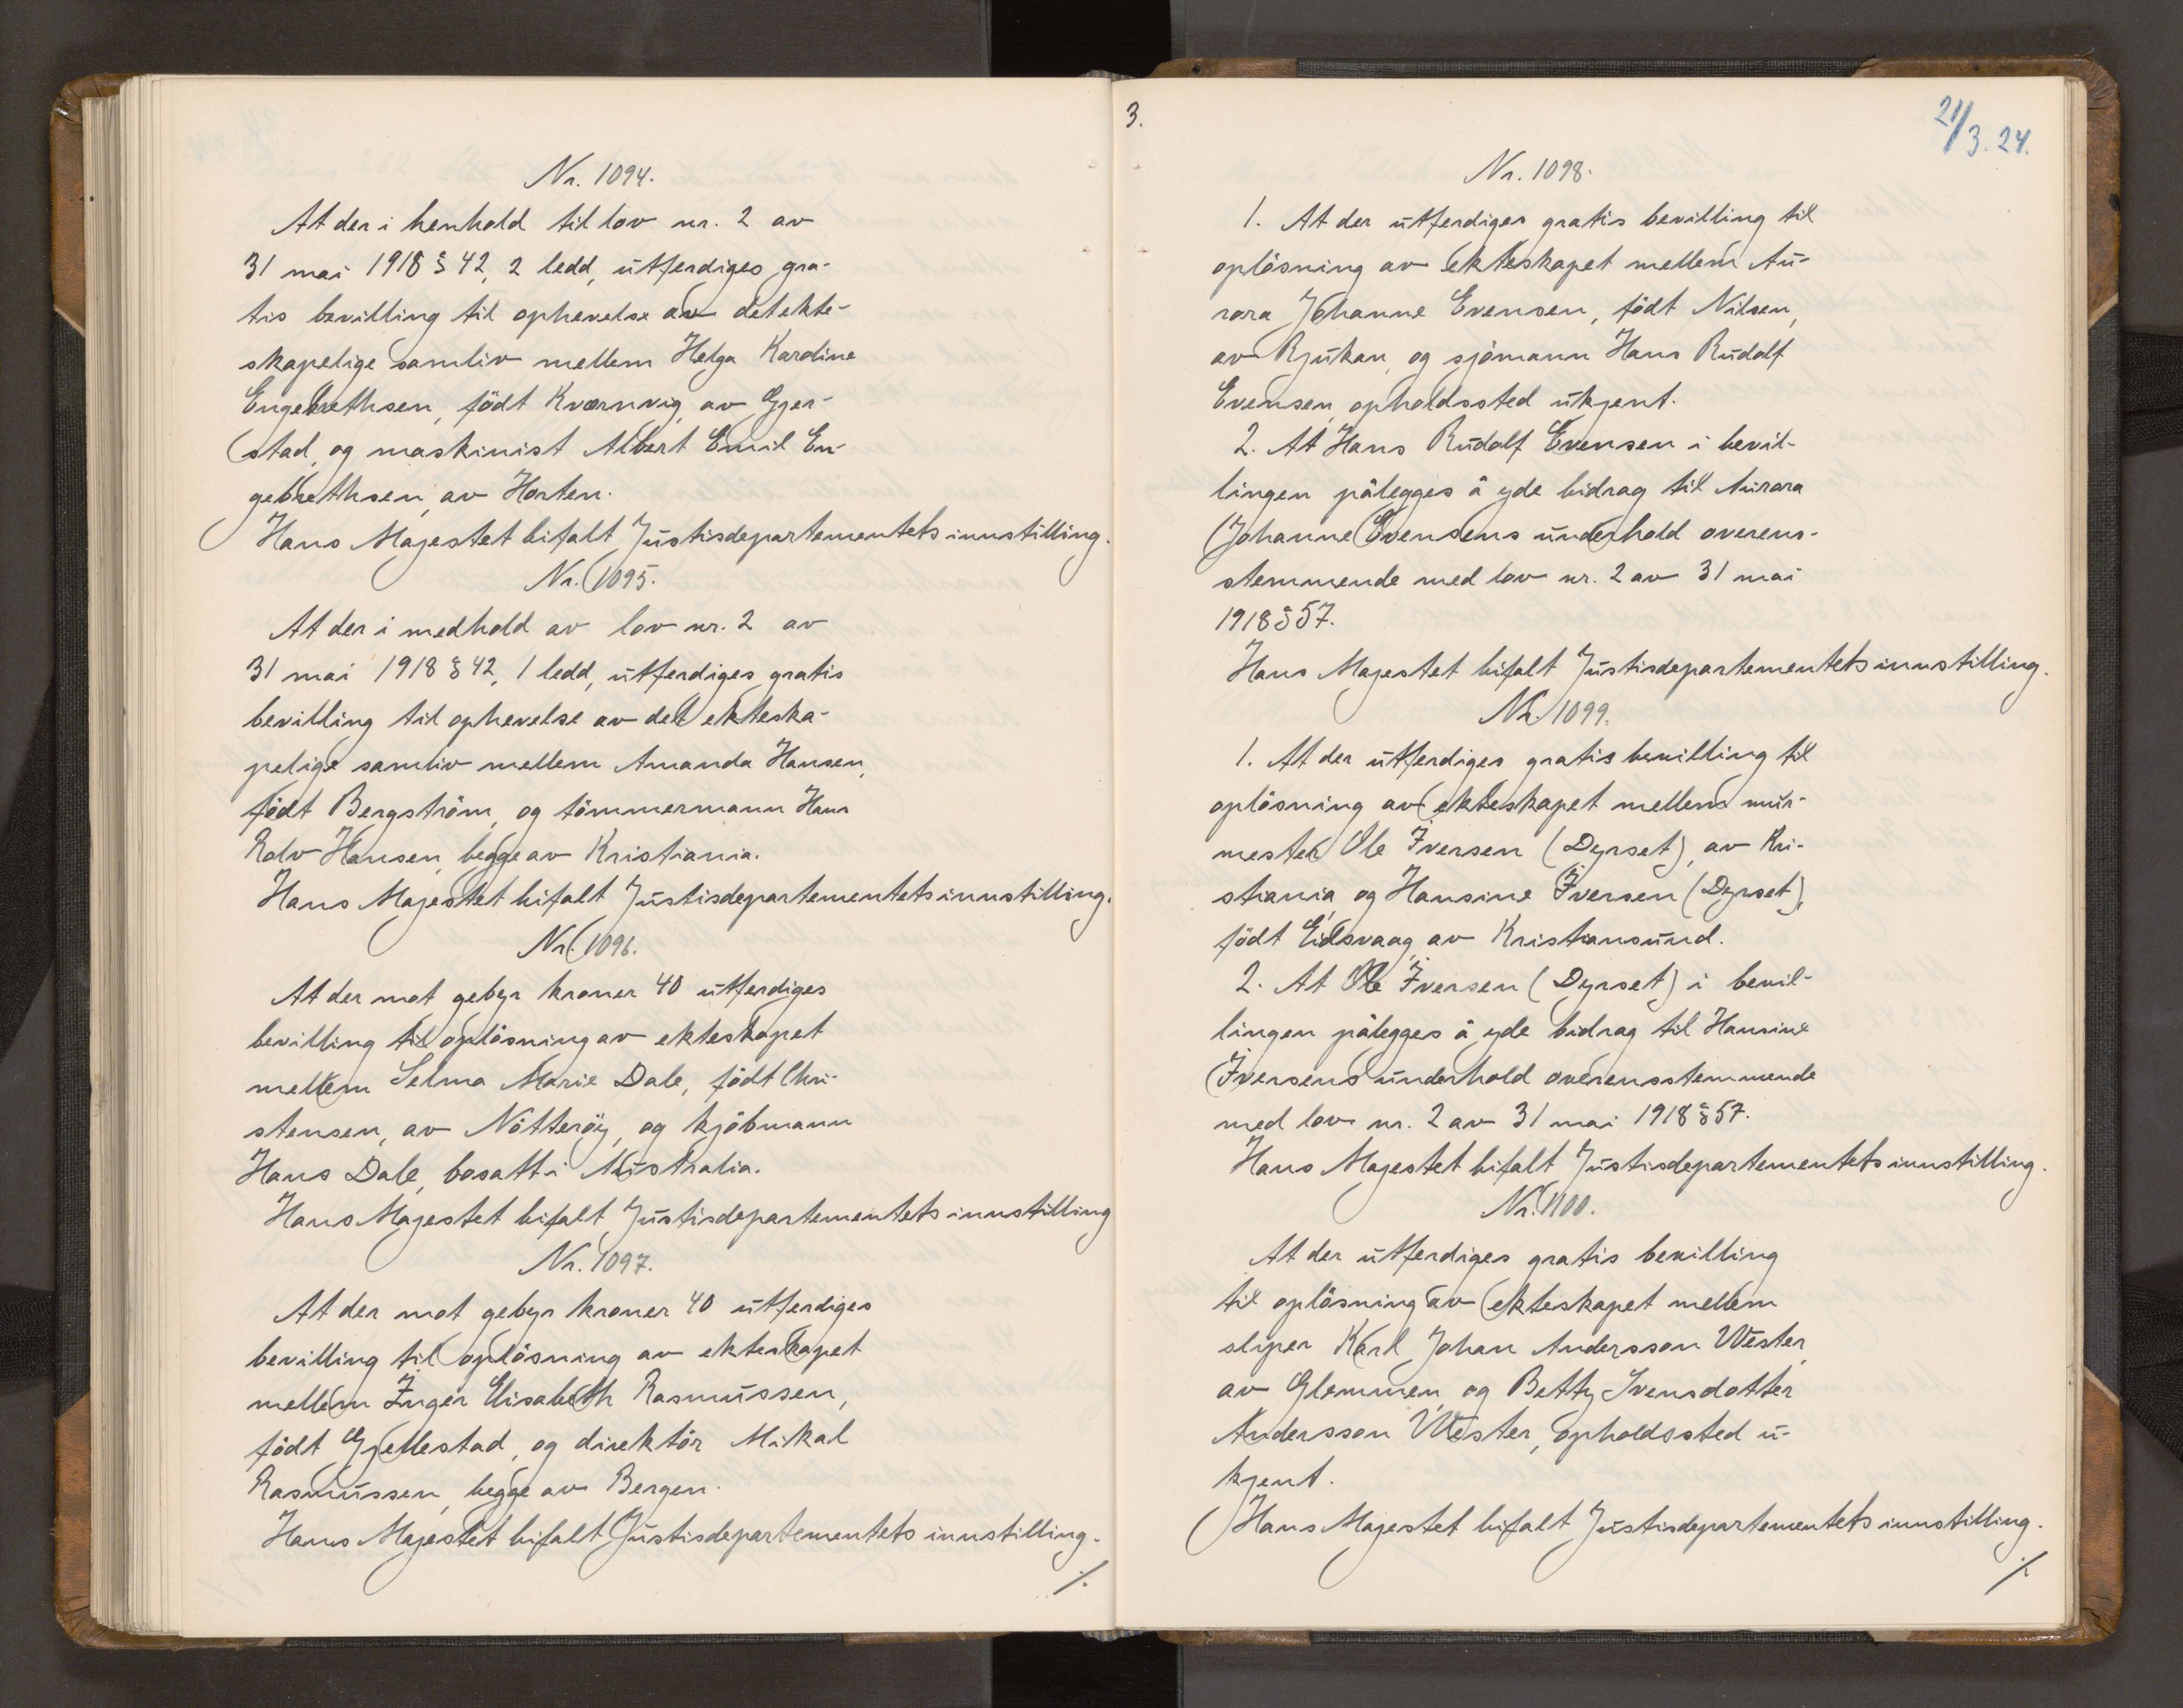 Nr. 1094.
At der i henhold til lov nr. 2 av
31 mai 1918 § 42, 2 ledd, utferdiges gra-
tis bevilling til ophevelse av det ekte-
skapelige samliv mellem Helga Kardine
Engebrethsen, född Kværnvig, av Gjer-
stad, og maskinist Albert Emil En-
gebrethsen, av Horten.
Hans Majestet bifalt Justisdepartementets innstilling.
Nr. 1095.
At der i medhold av lov nr. 2 av
31 mai 1918 § 42, 1 ledd, utferdiges gratis
bevilling til ophevelse av det ekteska-
pelige samliv mellem Amanda Hansen,
född Bergström, og tömmermann Hans
Rolv Hansen, begge av Kristiania.
Hans Majestet bifalt Justisdepartementets innstilling.
Nr. 1096.
At der mot gebyr kroner 40 utferdiges
bevilling til oplösning av ekteskapet
mellem Selma Marie Dale, född Chri-
stensen, av Nötteröy, og kjöbmann
Hans Dale, bosatt i Australia.
Hans Majestet bifalt Justisdepartementets innstilling
Nr. 1097.
At der mot gebyr kroner 40 utferdiges
bevilling til oplösning av ekteskapet
mellem Inger Elisabeth Rasmussen,
född Gjellestad, og direktör Mikal
Rasmussen, begge av Bergen.
Hans Majestet bifalt Justisdepartementets innstilling.
./.
3.
21/3.24.
Nr. 1098.
1. At der utferdiges gratis bevilling til
oplösning av ekteskapet mellem Au-
rora Johanne Evensen, född Nilsen,
av Rjukan, og sjömann Hans Rudolf
Evensen, opholdssted ukjent.
2. At Hans Rudolf Evensen i bevil-
lingen pålegges å yde bidrag til Aurora
Johanne Evensens underhold overens-
stemmende med lov nr. 2 av 31 mai
1918 § 57.
Hans Majestet bifalt Justisdepartementets innstilling.
Nr. 1099.
1. At der utferdiges gratis bevilling til
oplösning av ekteskapet mellem mur-
mester Ole Iversen (Dyrset), av Kri-
stiania, og Hansine Iversen (Dyrset),
född Eidsvaag, av Kristiansund.
2. At Ole Iversen (Dyrset) i bevil-
lingen pålegges å yde bidrag til Hansine
Iversens underhold overensstemmende
med lov nr. 2 av 31 mai 1918 § 57.
Hans Majestet bifalt Justisdepartementets innstilling.
Nr. 1100.
At der utferdiges gratis bevilling
til oplösning av ekteskapet mellem
sliper Karl Johan Andersson Wester,
av Glemmen, og Betty Svensdotter
Andersson Wester, opholdssted u-
kjent.
Hans Majestet bifalt Justisdepartementets innstilling.
./.